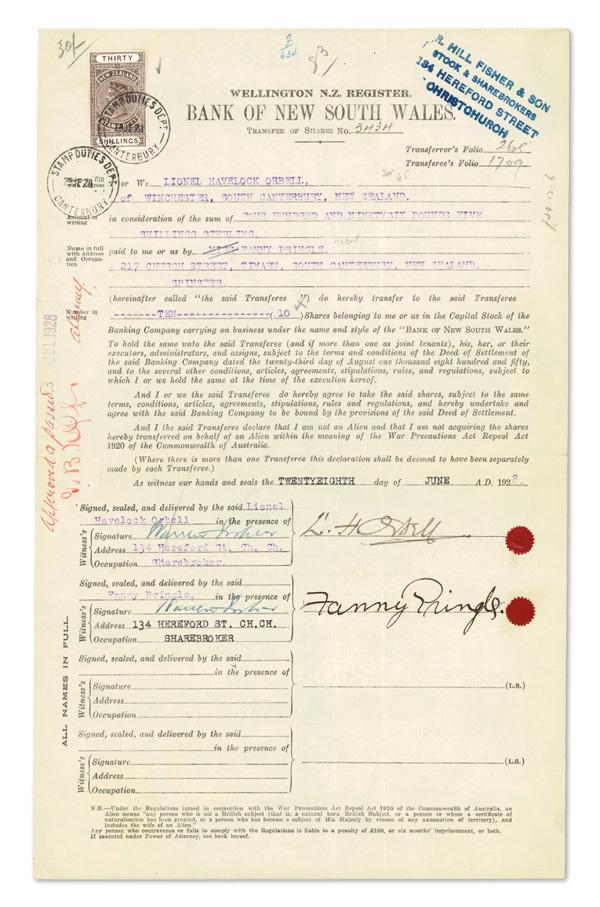 30/-
THIRTY
NEW ZEALAND
STAMP DUTY
SHILLINGS
STAMP DUTIES DEPT
CANTERBURY
STAMP DUTIES DEPT
CANTERBURY
R. HILL FISHER & SON
STOCK & SHAREBROKERS
134 HEREFORD STREET
CHRISTCHURCH
WELLINGTON N.Z. REGISTER.
BANK OF NEW SOUTH WALES.
TRANSFER OF SHARES No. 3434
Transferror's Folio 265
Transferee's Folio 1709
or We LIONEL HAVELOCK ORBELL,
of WINCHESTER, SOUTH CANTERBURY, NEW ZEALAND.
Amount in writing
in consideration of the sum of FOUR HUNDRED AND NINETYSIX POUNDS FIVE
SHILLINGS STERLING.
Name in full with Address and Occupation
paid to me or us by MISS FANNY PRINGLE.
217 CHURCH STREET, TIMARU, SOUTH CANTERBURY, NEW ZEALAND.
SPINSTER
(hereinafter called "the said Transferee ") do hereby transfer to the said Transferee
Number in writing
-------TEN---------------( 10 ) Shares belonging to me or us in the Capital Stock of the
Banking Company carrying on business under the name and style of the "BANK OF NEW SOUTH WALES."
To hold the same unto the said Transferee (and if more than one as joint tenants), his, her, or their
executors, administrators, and assigns, subject to the terms and conditions of the Deed of Settlement of
the said Banking Company dated the twenty-third day of August one thousand eight hundred and fifty,
and to the several other conditions, articles, agreements, stipulations, rules, and regulations, subject to
which I or we hold the same at the time of the execution hereof.
And I or we the said Transferee do hereby agree to take the said shares, subject to the same
terms, conditions, articles, agreements, stipulations, rules and regulations, and hereby undertake and
agree with the said Banking Company to be bound by the provisions of the said Deed of Settlement.
And I the said Transferee declare that I am not an Alien and that I am not acquiring the shares
hereby transferred on behalf of an Alien within the meaning of the War Precautions Act Repeal Act
1920 of the Commonwealth of Australia.
(Where there is more than one Transferee this declaration shall be deemed to have been separately
made by each Transferee.)
As witness our hands and seals the TWENTYEIGHTH day of JUNE A.D. 1928.
JUL 1928
Approved & passed
Attorney
Signed, sealed, and delivered by the said Lionel
Havelock Orbell in the presence of
Witness's
Signature Warren Fisher
Address 134 Hereford St. Ch. Ch.
Occupation Sharebroker.
L. H Orbell
Signed, sealed, and delivered by the said
Fanny Pringle, in the presence of
Witness's
Signature Warren Fisher
Address 134 HEREFORD ST. CH.CH.
Occupation SHAREBROKER
Fanny Pringle.
ALL NAMES IN FULL.
Signed, sealed, and delivered by the said
in the presence of
Witness's
Signature
Address
Occupation
(L.S.)
Signed, sealed, and delivered by the said
in the presence of
Witness's
Signature
Address
Occupation
(L.S.)
N.B.—Under the Regulations issued in connection with the War Precautions Act Repeal Act 1920 of the Commonwealth of Australia, an
Alien means "any person who is not a British subject (that is, a natural born British Subject, or a person to whom a certificate of
naturalization has been granted, or a person who has become a subject of His Majesty by reason of any annexation of territory), and
includes the wife of an Alien."
Any person who contravenes or fails to comply with the Regulations is liable to a penalty of £100, or six months' imprisonment, or both.
If executed under Power of Attorney, see back hereof.